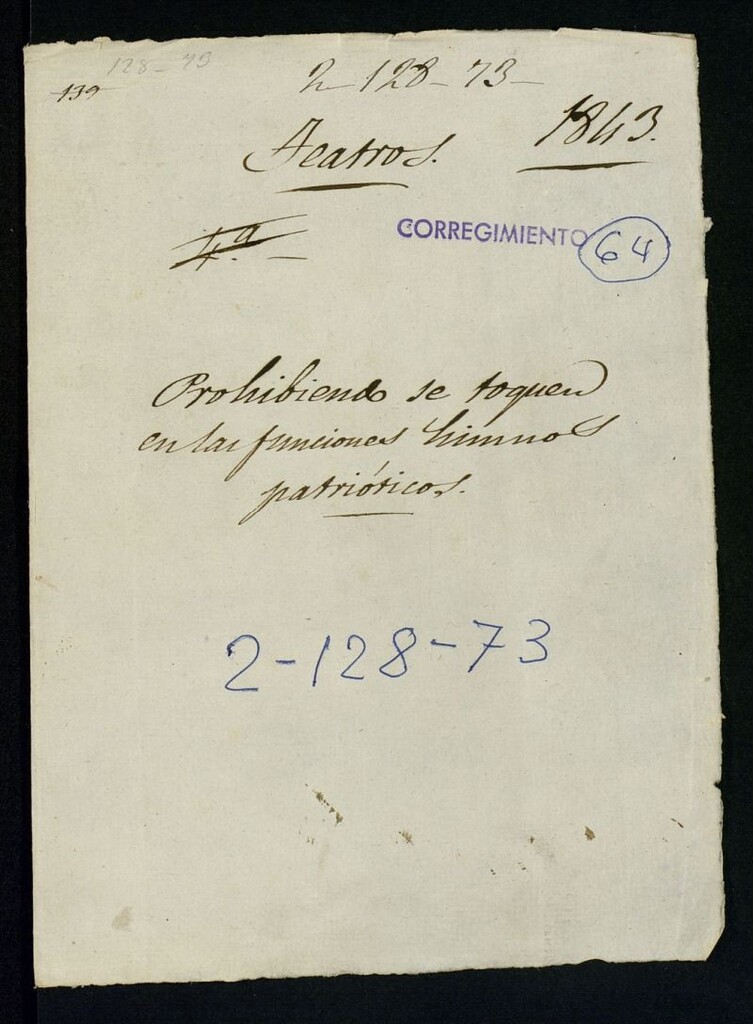 128-73
139
2-128-73-
Teatros. 1843.
4.ª -
CORREGIMIENTO 64
Prohibiendo se toquen
en las funciones himnos
patrióticos.
2-128-73